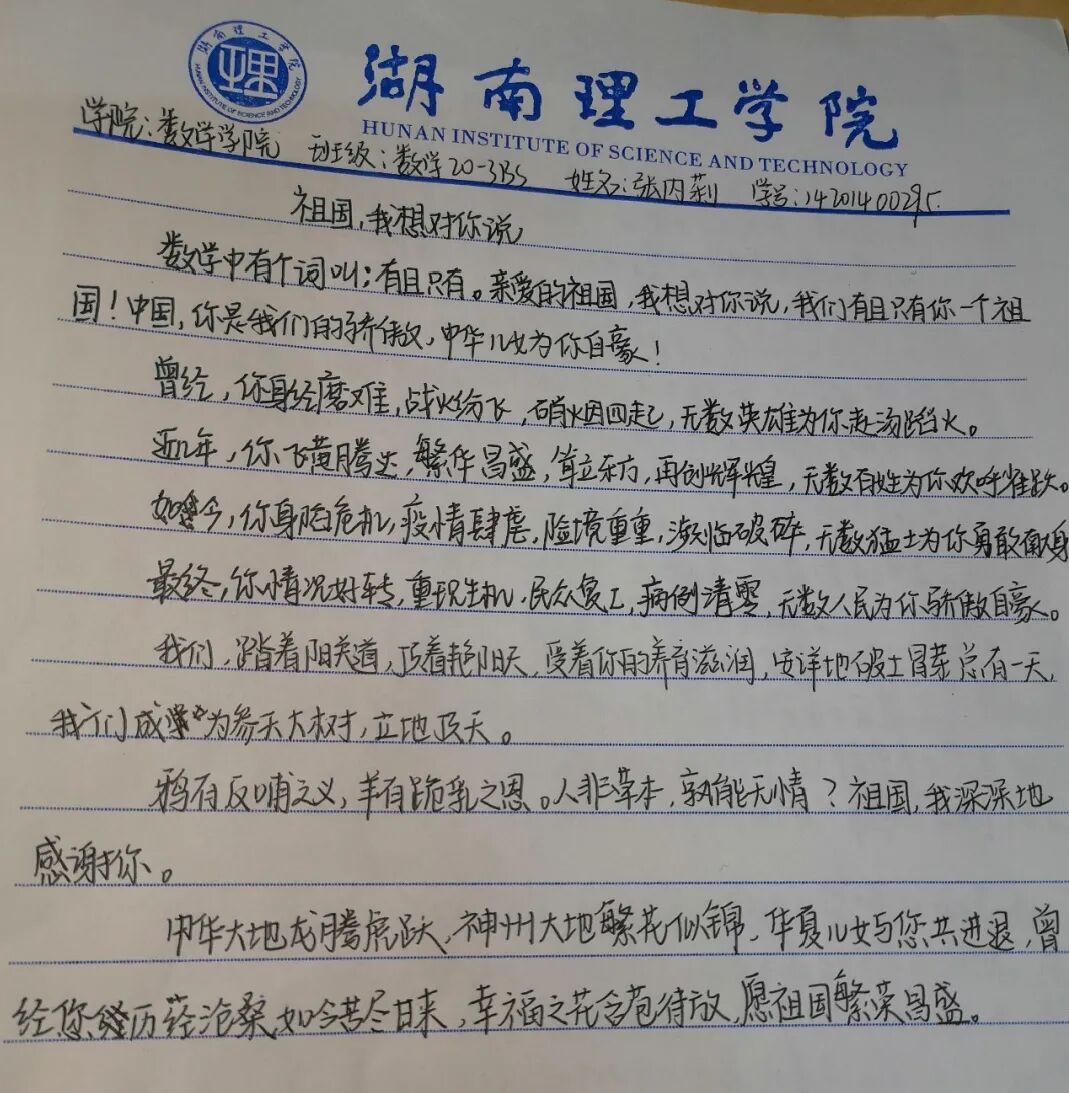 湖南理工学院
HUNAN INSTITUTE OF SCIENCE AND TECHNOLOGY
湖南理工学院
HUNAN INSTITUTE OF SCIENCE AND TECHNOLOGY
学院:数学学院 班级:数学20-3BS 姓名:张内莉 学号:14201400295
祖国,我想对你说
数学中有个词叫:有且只有。亲爱的祖国,我想对你说,我们有且只有你一个祖
国!中国,你是我们的骄傲,中华儿女为你自豪!
曾经,你身经磨难,战火纷飞,硝烟四起,无数英雄为你赴汤蹈火。
近几年,你飞黄腾达,繁华昌盛,耸立东方,再创辉煌,无数百姓为你欢呼雀跃。
如今,你身陷危机,疫情肆虐,险境重重,濒临破碎,无数猛士为你勇敢献身
最终,你情况好转,重现生机,民众复工,病例清零,无数人民为你骄傲自豪。
我们,踏着阳关道,顶着艳阳天,受着你的养育滋润,安详地破土冒芽总有一天,
我们成为参天大树,立地顶天。
鸦有反哺之义,羊有跪乳之恩。人非草本,孰能无情?祖国,我深深地
感谢你。
中华大地龙腾虎跃,神州大地繁花似锦,华夏儿女与您共进退,曾
经您历经沧桑如今苦尽甘来,幸福之花含苞待放,愿祖国繁荣昌盛。